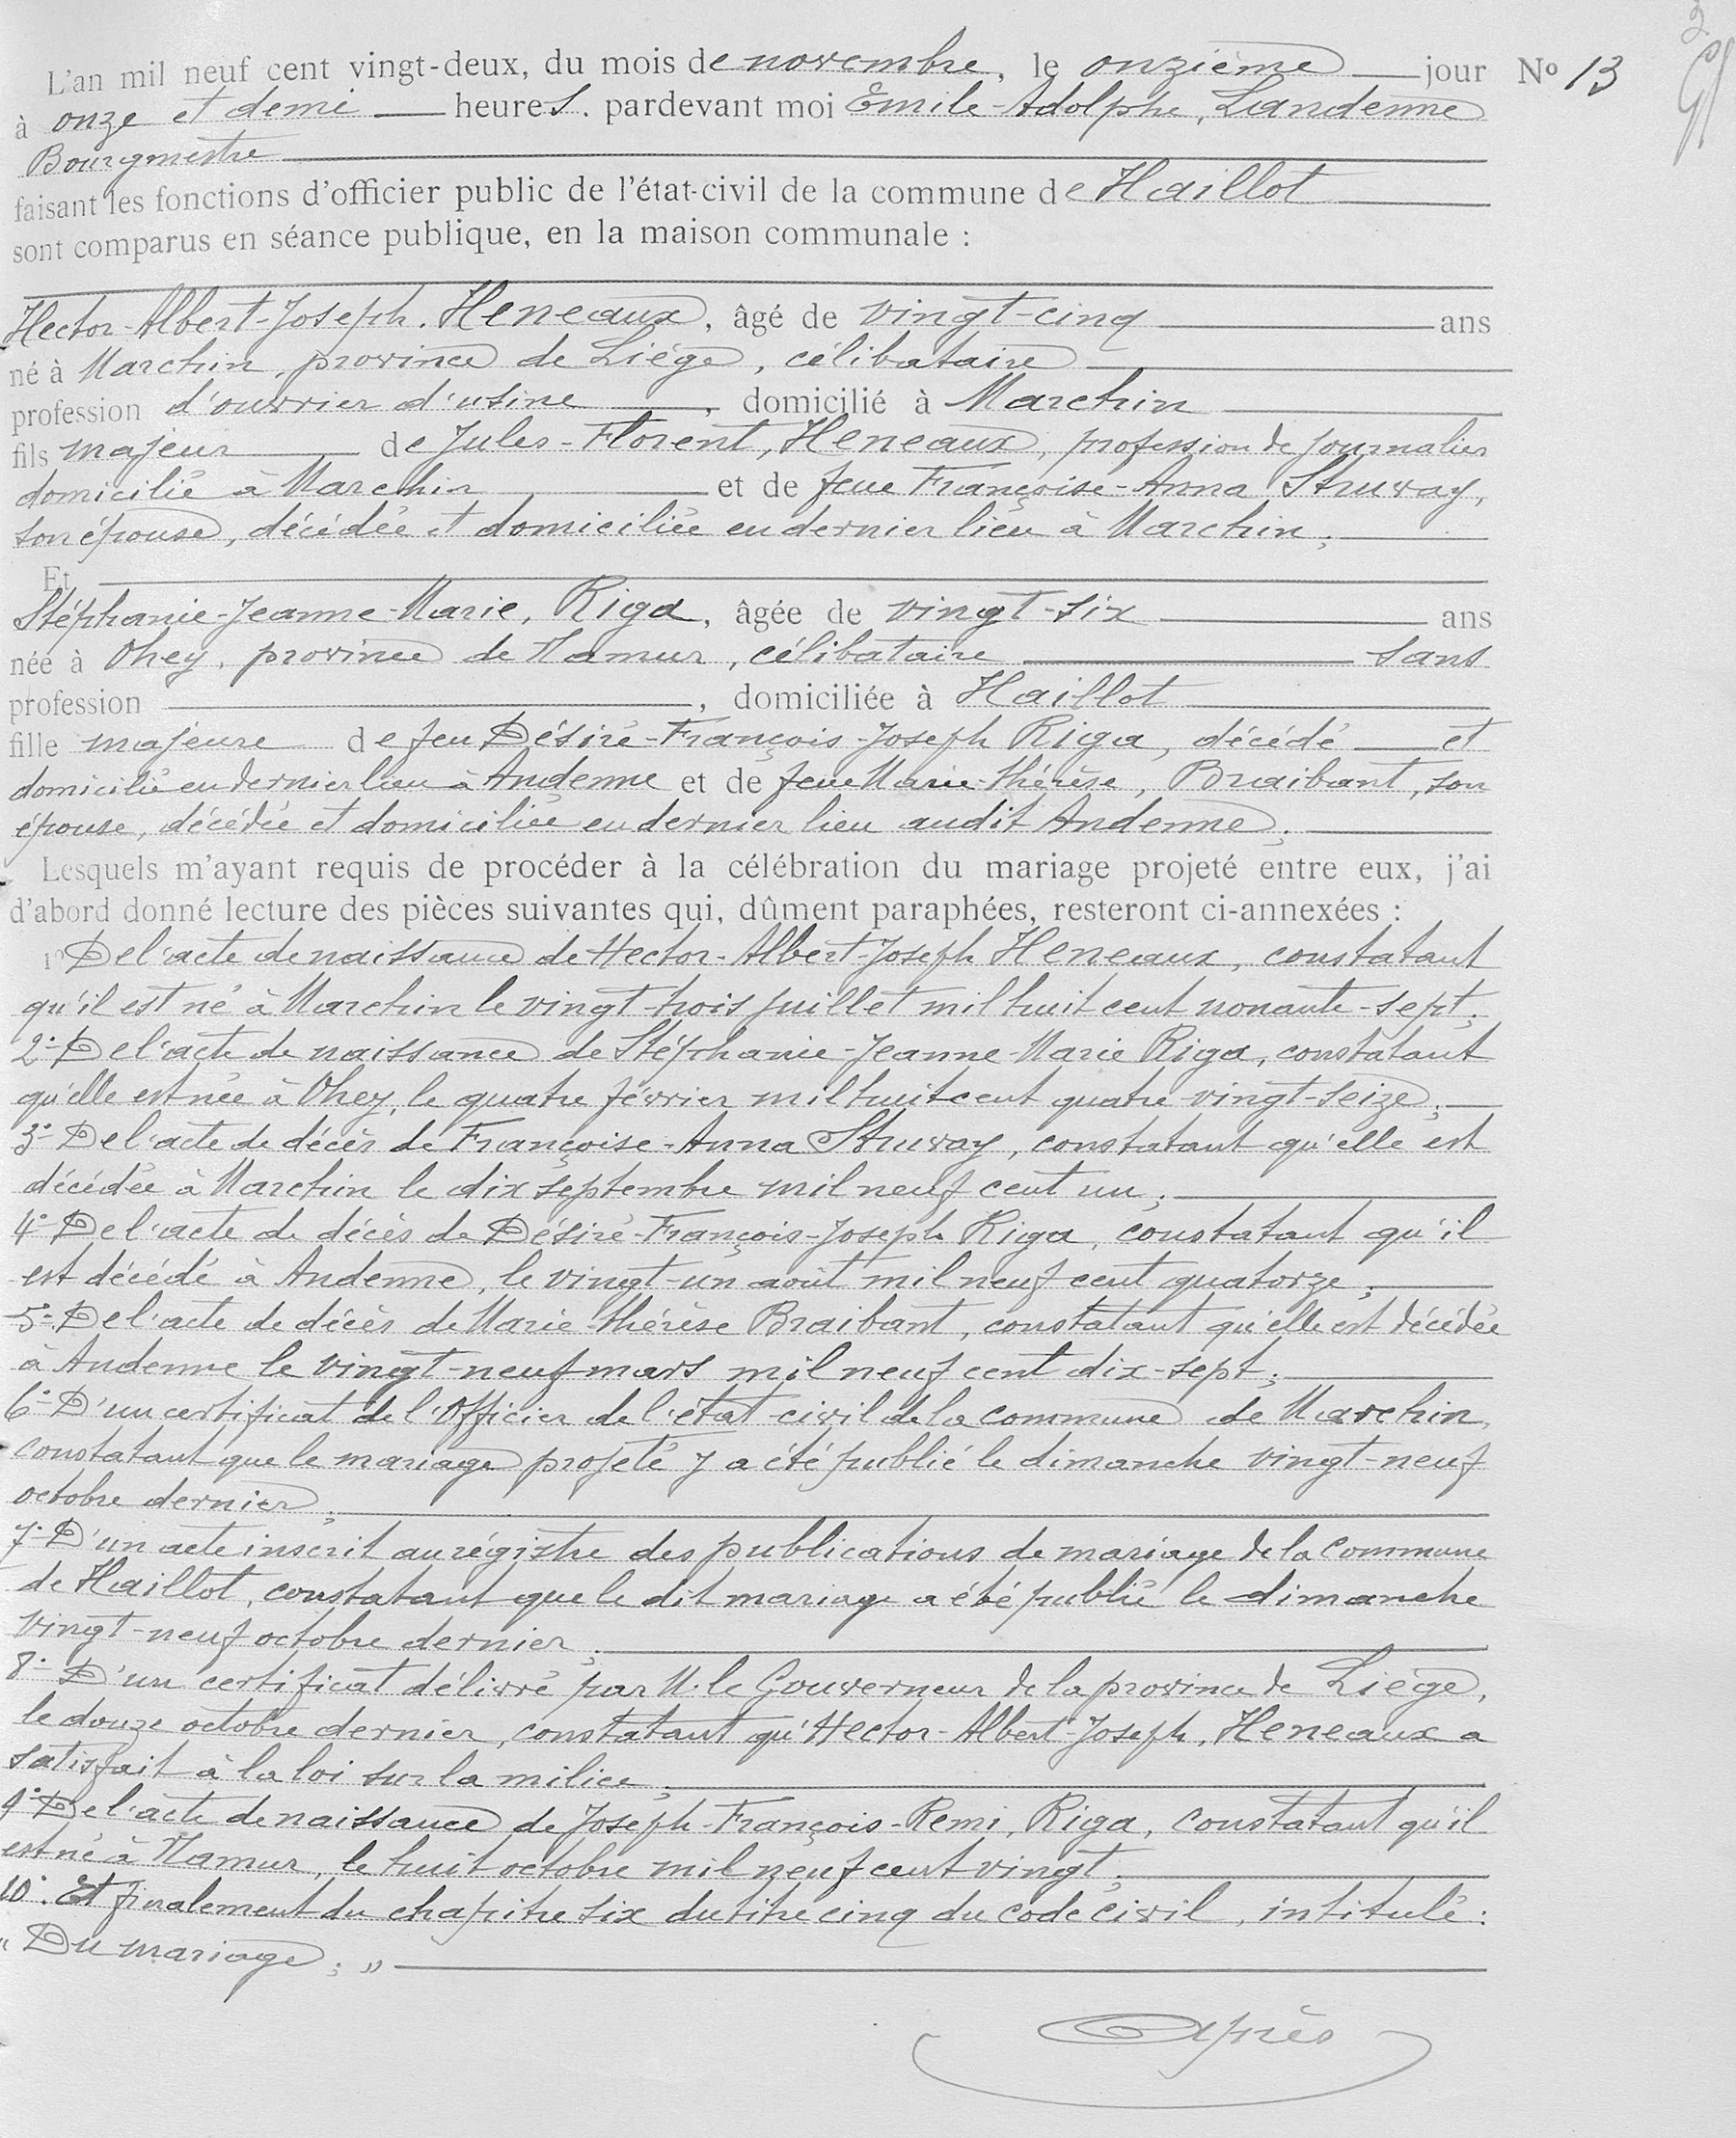 L'an mil neuf cent vingt-deux, du mois de novembre, le onzième jour Nº 13
à onze et demi heures. pardevant moi Emile-Adolphe, Landenne
Bourgmestre
faisant les fonctions d'officier public de l'état-civil de la commune de Haillot
sont comparus en séance publique, en la maison communale :
Hector-Albert-Joseph. Heneaux, âgé de vingt-cinq ans
né à Marchin, province de Liége, célibataire
profession d'ouvrier d'usine, domicilié à Marchin
fils majeur de Jules-Florent, Heneaux, profession de journalier
domicilié à Marchin et de feue Françoise-Anna Struvay,
son épouse, décédée et domiciliée en dernier lieu à Marchin;
Et
Stéphanie-Jeanne-Marie, Riga, âgée de vingt-six ans
née à Ohey, province de Namur, célibataire sans
profession , domiciliée à Haillot
fille majeure de feu Désiré-François-Joseph Riga, décédé et
domicilié en dernier lieu à Andenne et de feue Marie-Thérèse, Braibant, son
épouse, décédée et domiciliée en dernier lieu audit Andenne;
Lesquels m'ayant requis de procéder à la célébration du mariage projeté entre eux, j'ai
d'abord donné lecture des pièces suivantes qui, dûment paraphées, resteront ci-annexées :
1º De l'acte de naissance de Hector-Albert-Joseph Heneaux, constatant
qu'il est né à Marchin le vingt-trois juillet mil huit cent nonante-sept;
2º- De l'acte de naissance de Stéphanie-Jeanne-Marie Riga, constatant
qu'elle est née à Ohey, le quatre février mil huit cent quatre-vingt-seize;
3º- De l'acte de décès de Françoise-Anna Struvay, constatant qu'elle est
décédée à Marchin le dix septembre mil neuf cent un;
4º- De l'acte de décès de Désiré-François-Joseph Riga, constatant qu'il
est décédé à Andenne, le vingt-un août mil neuf cent quatorze;
5º- De l'acte de décès de Marie-Thérèse Braibant, constatant qu'elle est décédée
à Andenne le vingt-neuf mars mil neuf cent dix-sept;
6º- D'un certificat de l'Officier de l'état-civil de la commune de Marchin,
constatant que le mariage projeté y a été publié le dimanche vingt-neuf
octobre dernier;
7º- D'un acte inscrit au régistre des publications de mariage de la commune
de Haillot, constatant que le dit mariage a été publié le dimanche
vingt-neuf octobre dernier;
8º- D'un certificat délivré par M. le Gouverneur de la province de Liège,
le douze octobre dernier, constatant qu'Hector-Albert-Joseph, Heneaux a
satisfait à la loi sur la milice;
9º De l'acte de naissance de Joseph-François-Remi, Riga, constatant qu'il
est né à Namur, le huit octobre mil neuf cent vingt;
10º. Et finalement du chapitre six du titre cinq du code civil, intitulé:
"Du mariage;"
Après